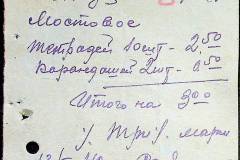 Мостовое
тетрадей 10 шт - 2,50
Карандашей 2 шт - 0,50
Итого на 3 00
/. Три/. марки